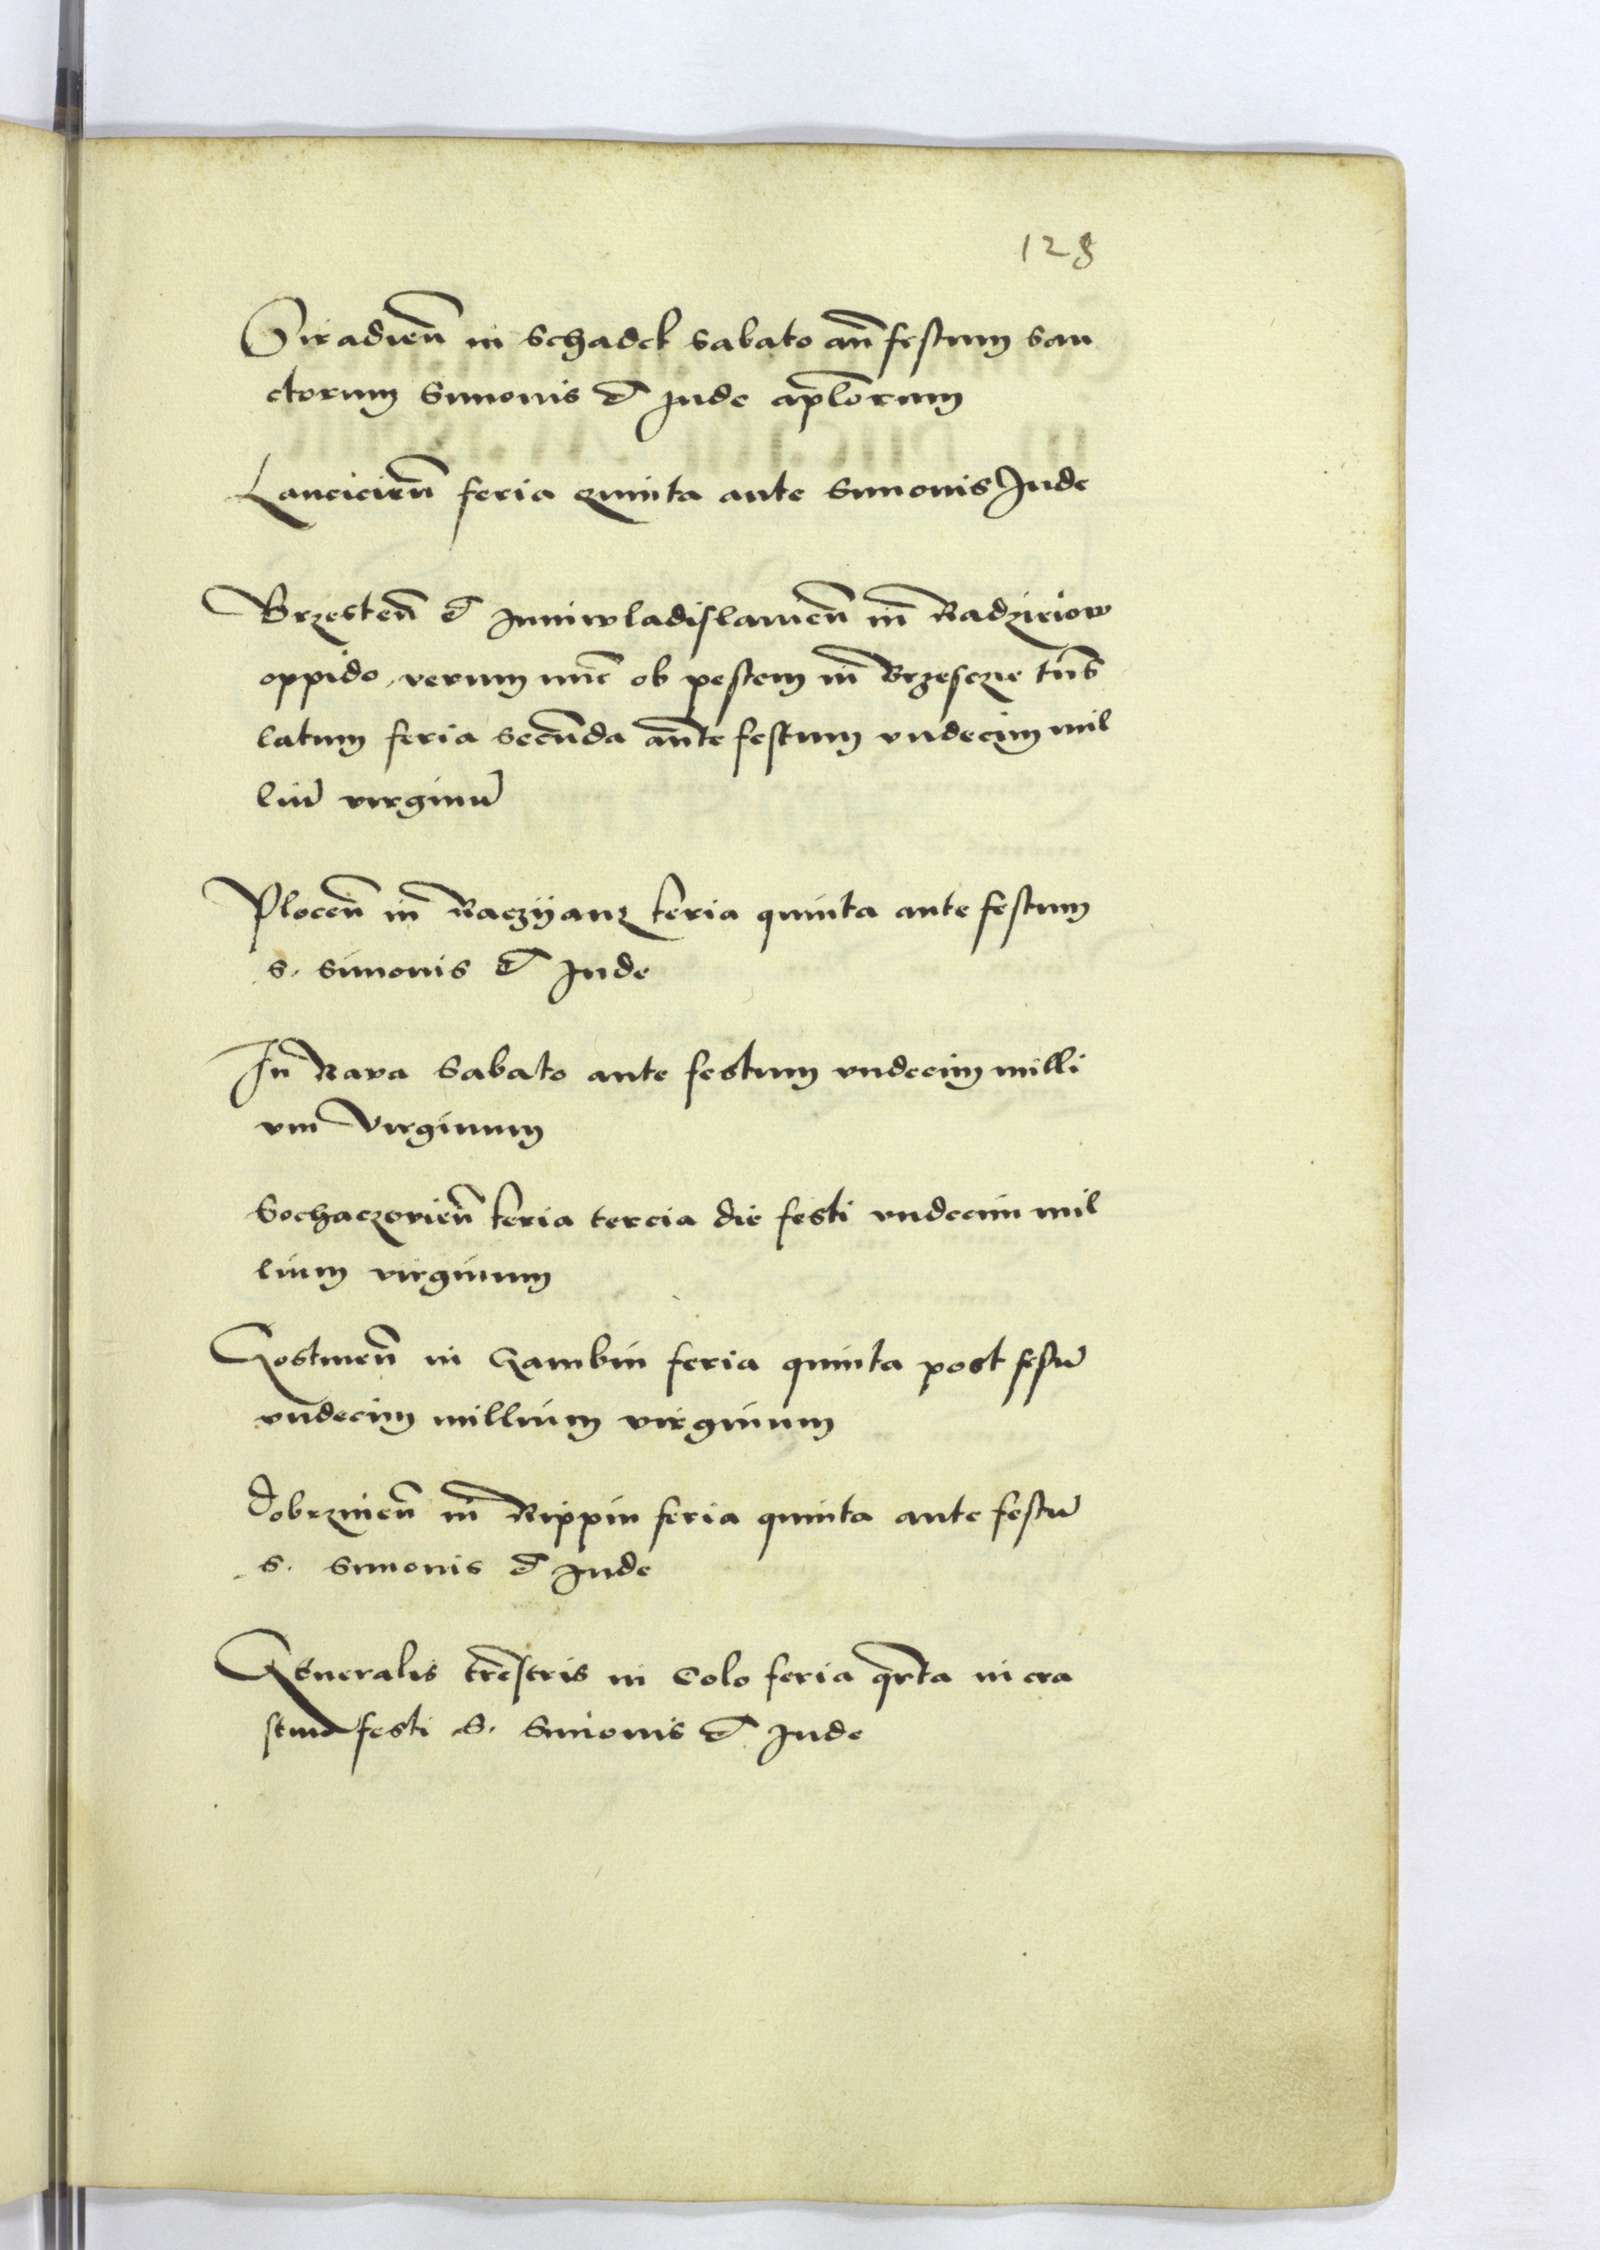 128
Siradien̄ in Schadek Sabato an̄ festum san
ctorum Simonis et Jude ap̄lorum
Lancicien̄ feria Quinta ante Simonis Jude
Brzesten̄ et Juniwladislauien̄ in Radzieiow
oppido, verum nūc ob pestem in Brzesczie trn̄s
latum feria secūnda ānte festum vndecim mil
liū virginū
Plocen̄ in Raczÿanz feria quinta ante festum
s. Simonis et Jude
In Rava Sabato ante festum vndecim milli
um Virginum
Sochaczovien̄ feria tercia die festi vndecim mil
lium virginum
Gostinen̄ in Gambin feria quinta post festū
vndecim millium virginum
Dobrzinen̄ in Rippin feria quinta ante festū
S. Simonis et Jude
Generalis tr̄estris in Colo feria qrta in cra
stino festi S. Simonis et Jude